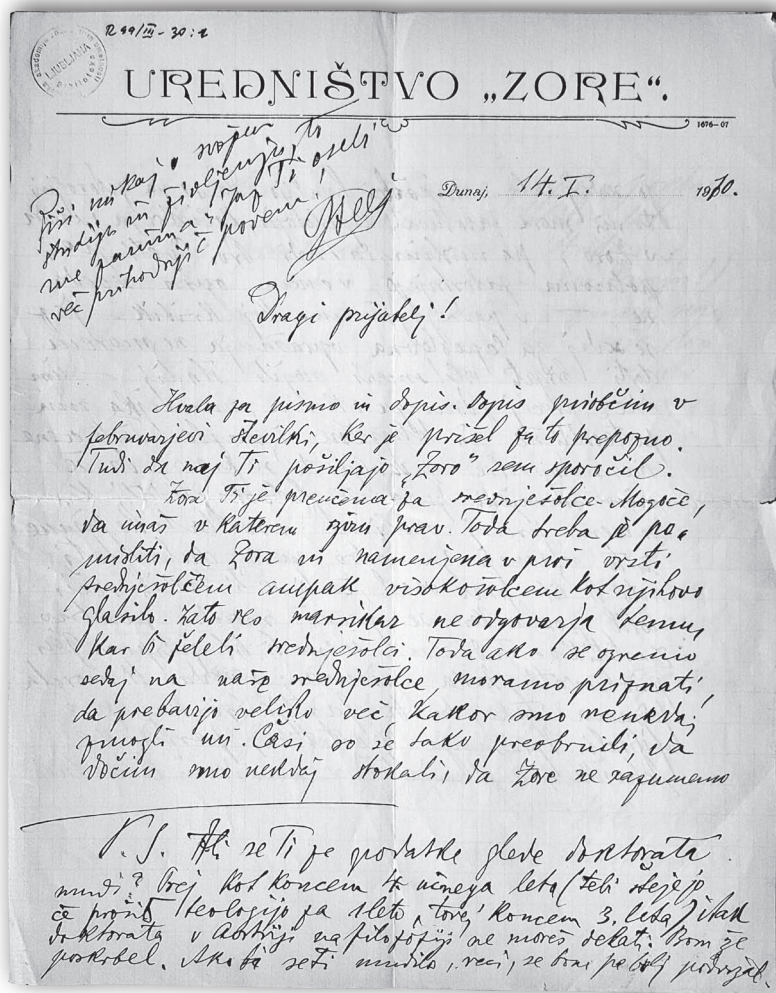 R 99/III - 30:1
LJUBLJANA
UREDNIŠTVO „ZORE“.
1676—07
Piši mi kaj o svojem
študiju in življenju, to
me zanima! Jaz Ti o sebi
več prihodnjič povem!
Dunaj, 14. I. 1910.
Dragi prijatelj!
Hvala za pismo in dopis. Dopis priobčim v
februvarjevi številki, ker je prišel za to prepozno.
Tudi da naj Ti pošiljajo „Zoro“ sem sporočil.
Zora Ti je preučena za srednješolce. Mogoče,
da imaš v katerem oziru prav. Toda treba je po-
misliti, da Zora ni namenjena v prvi vrsti
srednješolcem ampak visokošolcem kot njihovo
glasilo. Zato seo marsikaj ne odgovarja temu,
kar bi želeli srednješolci. Toda ako se ozremo
sedaj na naše srednješolce, moramo priznati,
da prebavijo veliko več, kakor smo nekdaj
zmogli mi. Časi so se tako preobrnili, da
dočim smo nekdaj stokali, da Zore ne razumemo
P. S. Ali se Ti za podatke glede doktorata
mudi? Prej kot koncem 4. učnega leta (teh štejejo
če prosiš teologijo za 1 leto, torej koncem 3. leta) itak
doktorata v Avstriji na filozofiji ne moreš delati. Bom že
poskrbel. Ako bi se Ti mudilo, reci, se bom pa bolj